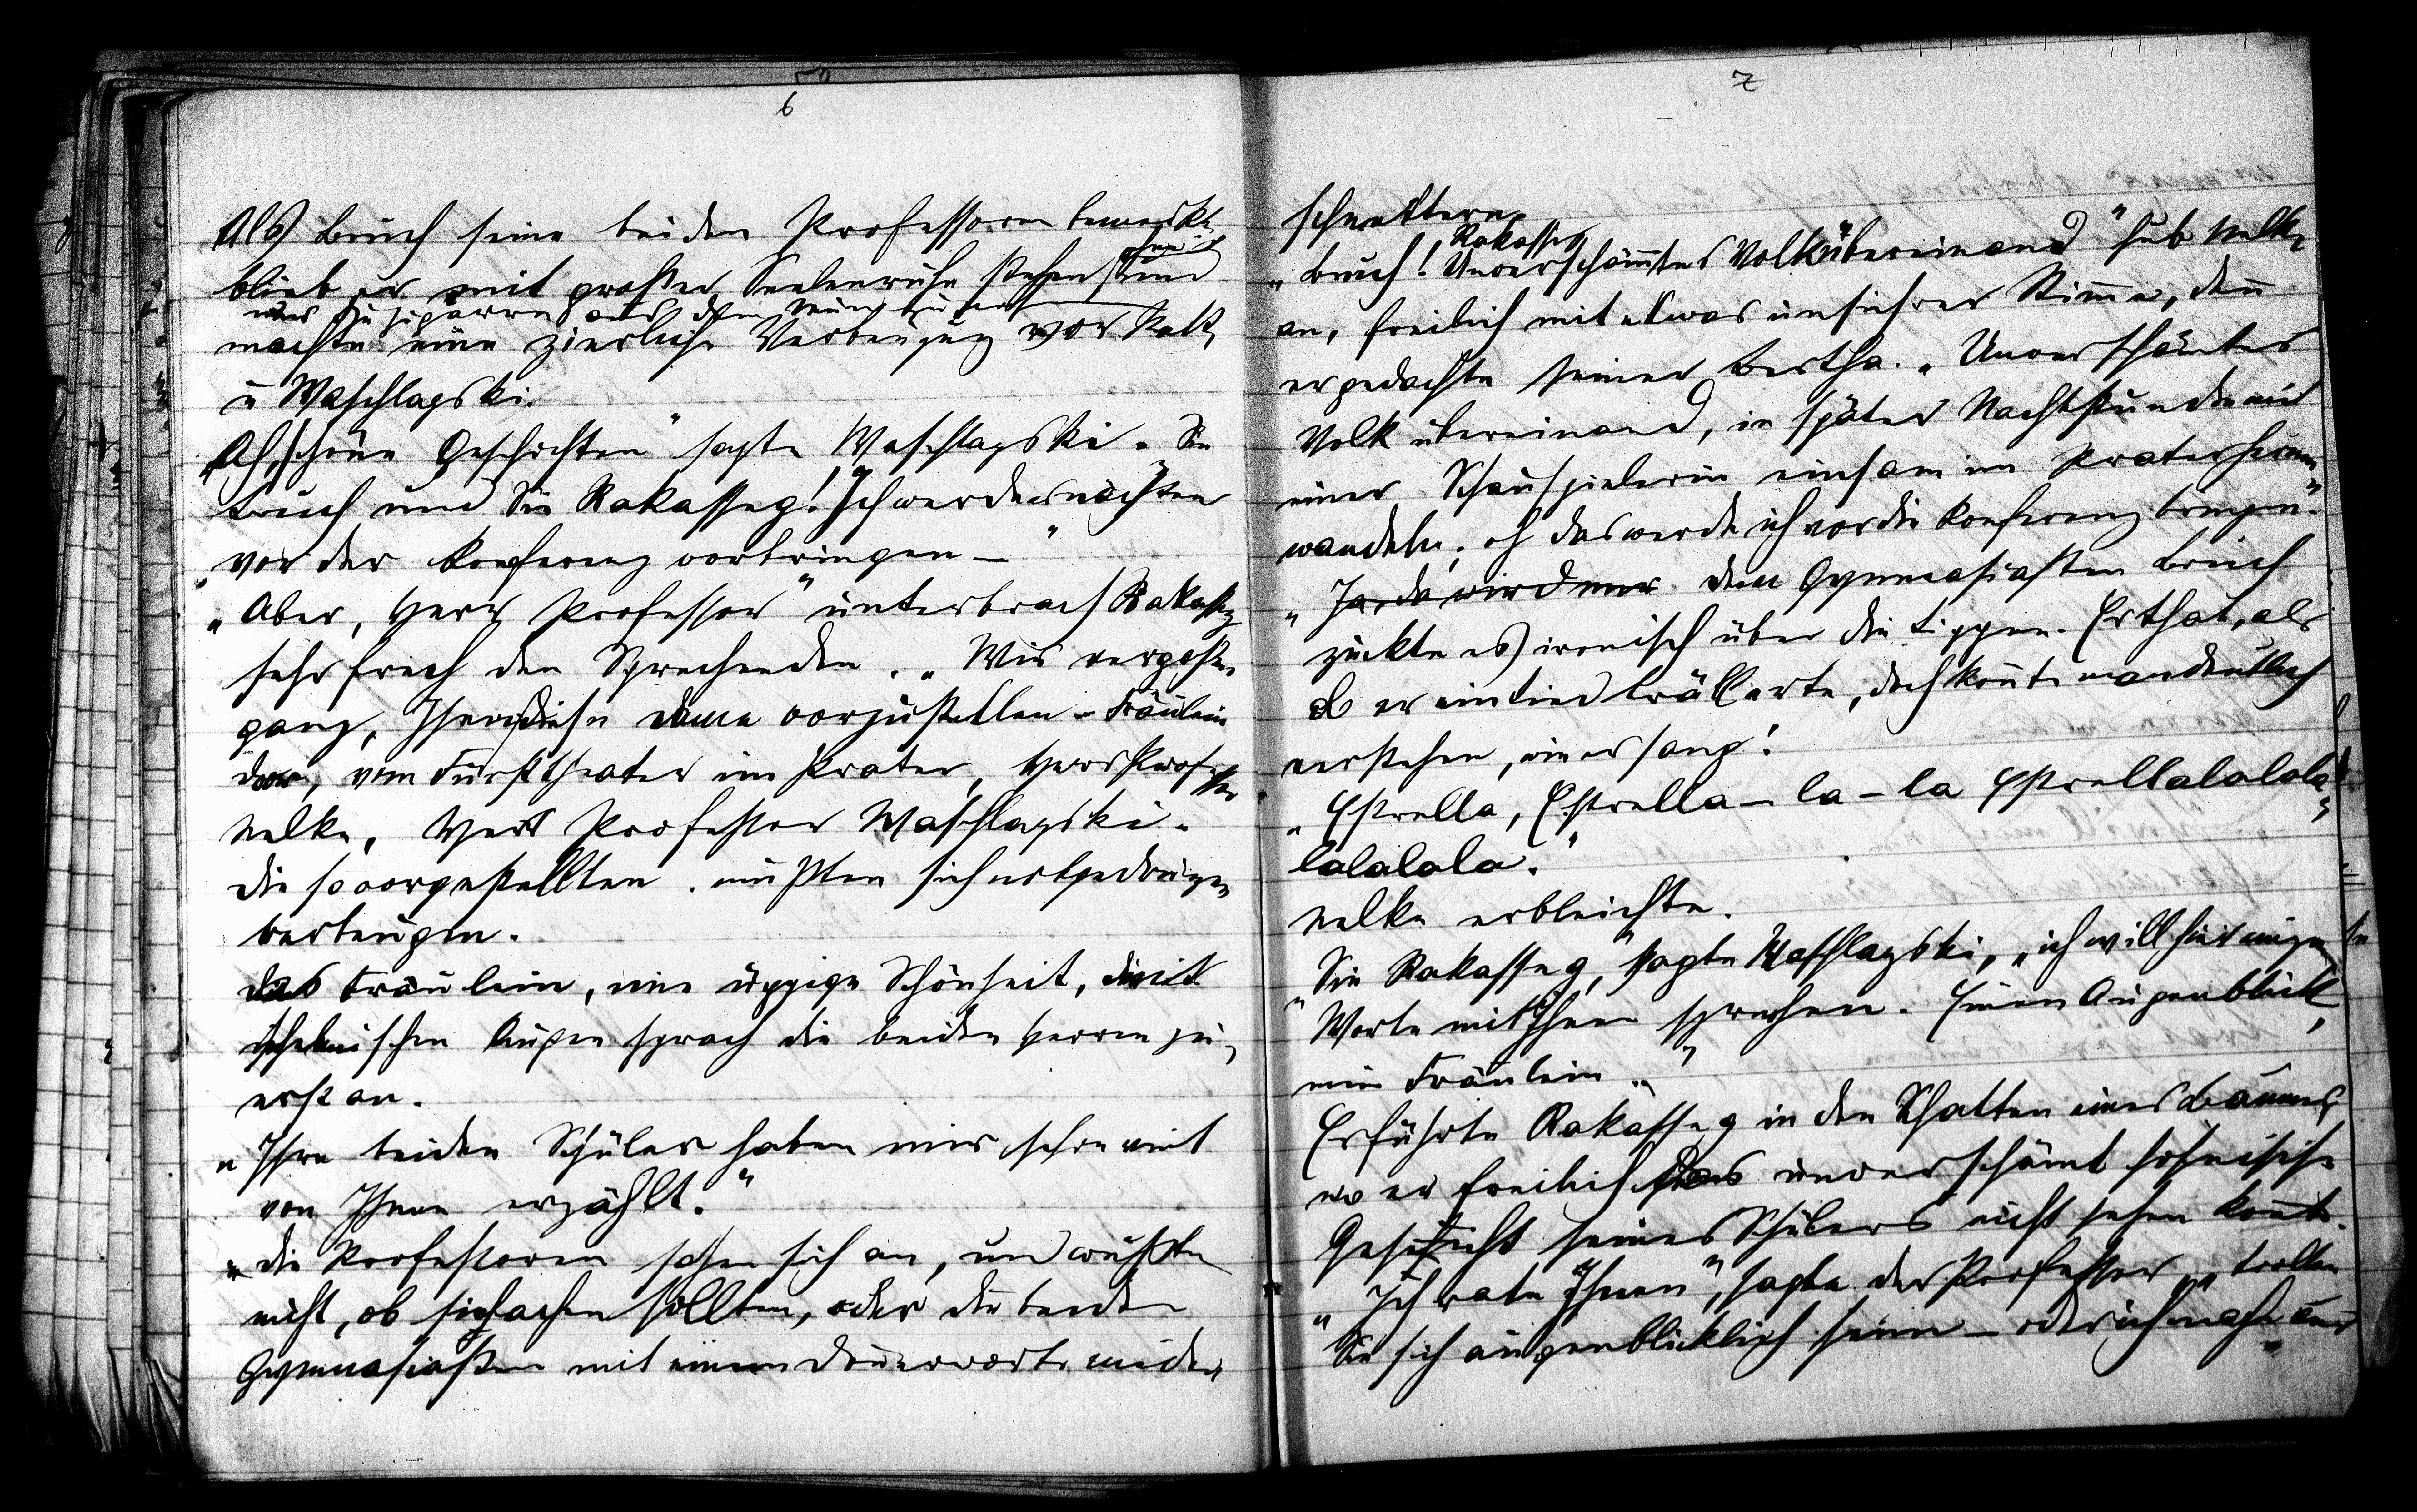 6
Als Bruch seine beiden Professoren bemerkte
blieb er mit großer Seelenruhe stehen und
die Zigarre aus dem Mund
machte eine zierliche Verbeugung vor
u Waschlagski.
„Ah, schöne Geschichten“ sagte Waschlagski „Sie
Bruch und Sie Rakasseg! Ich werde es nächsten
vor der Konferenz vorbringen —“
„Aber, Herr Professor“ unterbrach Rakasseg
sehr frech den Sprechenden. „Wir vergaßen
ganz, Ihnen diese Dame vorzustellen – Fräulein
vom Fürsttheater im Prater, Herr Professor
Nelke, Herr Professor Waschlagski.
Die so vorgestellten mußten sich notgedrungen
verbeugen.
Das Fräulein, eine üppige Schönheit, mit
schelmischen Augen sprach die beiden Herren zu-
erst an.
„Ihre beiden Schüler haben mir schon viel
von Ihnen erzählt.“
Die Professoren sahen sich an, und wußten
nicht, ob sie lachen sollten, oder die beiden
Gymnasiasten mit einem Donnerworte nieder
7
schmettern.
Rakasseg
„Bruch! Unverschämtes Volk übereinand“ hub Nelke
an, freilich mit etwas unsichrer Stimme, denn
er gedachte seiner Bertha. „Unverschämtes
Volk übereinand, in später Nachtstunde mit
einer Schauspielerin einsam im Prater herum
wandeln, oh das werde ich vor die Konferenz bringen.“
„Ja da wird nur dem Gymnasiasten Bruch
zuckte es ironisch über die Lippen. Er that, als
ob er ein Lied trällerte, doch konnte man deutlich
verstehen, wie er sang:
„Estrella, Estrella – la – la Estrellalalala
lalalala.“
Nelke erbleichte.
„Sie Rakasseg,“ sagte Waschlagski, „ich will hier einige
Worte mit Ihnen sprechen. Einen Augenblick,
mein Fräulein.“
Er führte Rakasseg in den Schatten eines Baumes
wo er freilich das unverschämt höhnische
Gesicht seines Schülers nicht sehen konnte.
„Ich rate Ihnen“, sagte der Professor, „trollen
Sie sich augenblicklich heim – oder ich mache aus